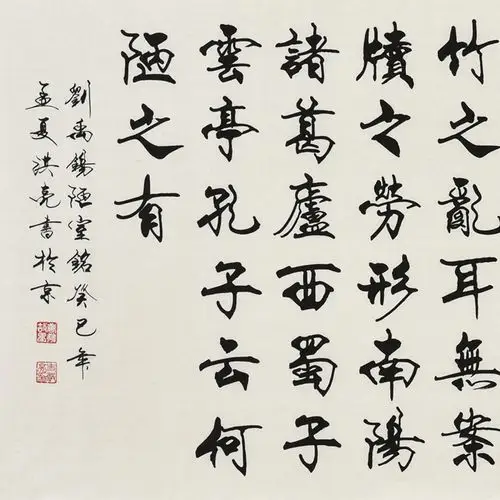 竹之亂耳無案
牘之勞形南陽
諸葛廬西蜀子
雲亭孔子云何
陋之有
劉禹錫陋室銘癸巳年
孟夏洪亮書於京